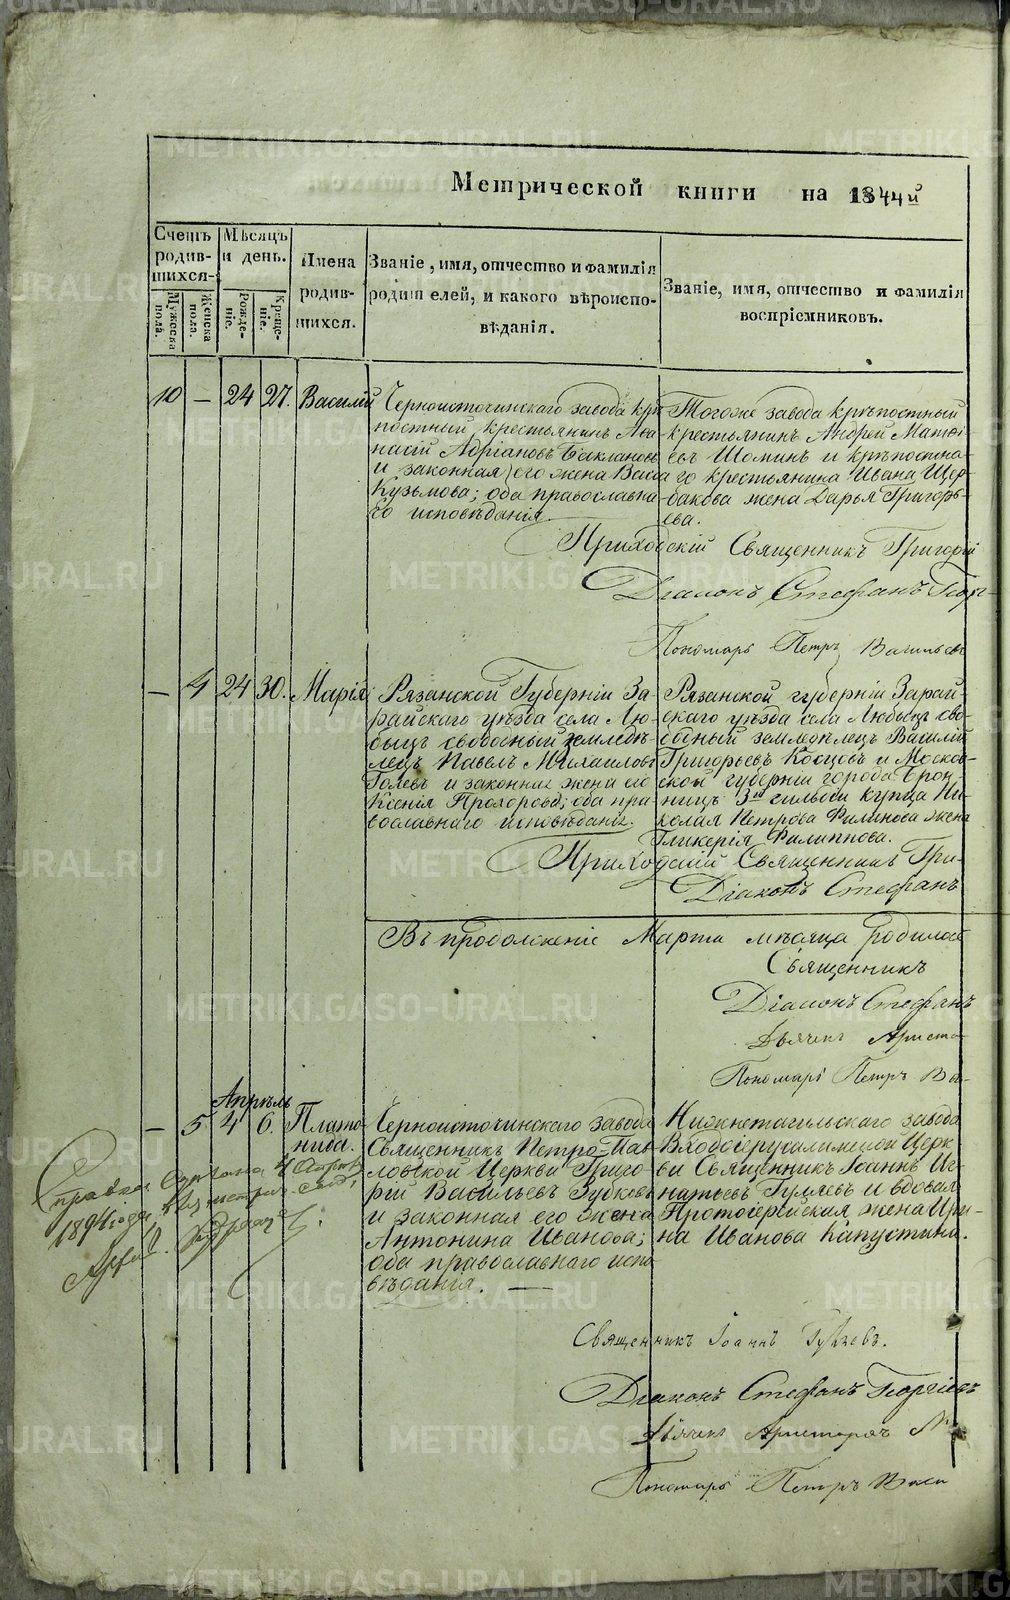 Метрической книги на 1844й
Счетъ родив-шихся.
Мужеска пола.
Женска пола.
Мѣсяцъ и день.
Рожде-нiе.
Креще-нiе.
Имена родив-шихся.
Званiе, имя, отчество и фамилiя
родителей, и какого вѣроиспо-
вѣданiя.
Званiе, имя, отчество и фамилiя
воспрiемниковъ.
10 — 24 27. Василiй
Черноисточинскаго завода крѣ
постный крестьянинъ Аѳа
насiй Адрiановъ Баклановъ
и законная его жена Васса
Кузьмова; оба православна
го исповѣданiя.
Тогоже завода крѣпостный
крестьянинъ Андрей Матвѣ
евъ Шоминъ и крѣпостна
го крестьянина Ивана Щер
бакова жена Дарья Григорь
ева.
Приходскiй Священникъ Григорiй
Дiаконъ Стефанъ Георг-
Пономарь Петръ Васильевъ
— 4 24 30. Марiя
Рязанской Губернiи За
райскаго уѣзда села Лю-
быцъ свободный землѣдѣ
лецъ Павелъ Михаиловъ
Голевъ и законная жена его
Ксенiя Прохорова; оба пра-
вославнаго исповѣданiя.
Рязанской губернiи Зарай-
скаго уѣзда села Любыцъ сво-
бодный землѣдѣлецъ Василiй
Григорьевъ Косцовъ и Москов-
ской губернiи города Брон
ницъ 3ей гильдiи купца Ни-
колая Петрова Филинова жена
Гликерiя Филиппова.
Приходскiй Священникъ Гри-
Дiаконъ Стефанъ
Въ продолженiе Марта мѣсяца родилось
Священникъ
Дiаконъ Стефанъ
Дьячекъ Ариста-
Пономарь Петръ Ва-
Апрѣль
— 5 4 6. Плато-
нида.
Черноисточинскаго завода
Священникъ Петро-Пав
ловской Церкви Григо
рiй Васильевъ Губкевъ
и законная его жена
Антонина Иванова;
оба православнаго испо
вѣданiя. —
Нижнетагильскаго завода
Входоiерусалимской Церк
ви Священникъ Iоаннъ Иг
натьевъ Гуляевъ и вдовая
Протоiерейская жена Ири
на Иванова Капустина.
Священникъ Iоаннъ Гуляевъ.
Дiаконъ Стефанъ Георгiевъ
Дьячекъ Аристархъ
Пономарь Петръ Васи
Справка
1894 года
METRIKI.GASO-URAL.RU